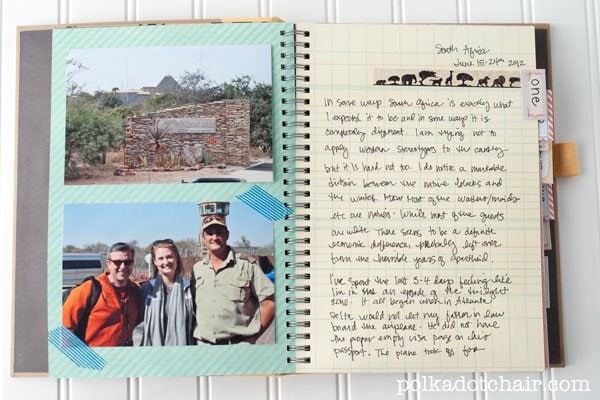 South Africa
June 15-24th 2012
one
In some ways South Africa is exactly what
I expected it to be and in some ways it is
completely different. I am trying not to
apply western stereotypes to the country
but it is hard not to. I do notice a
division between the native blacks and
the whites. Most of the waiters/maids
etc are natives while most of the guests
are white. There seems to be a definite
economic difference, probably left over
from the horrible years of Apartheid.
I've spent the last 3-4 days feeling like
I'm in an episode of the twilight
zone. It all began when in Atlanta
Delta would not let my father in law
board the airplane. He did not have
the proper empty visa page on his
passport. The plane took off for
polkadotchair.com